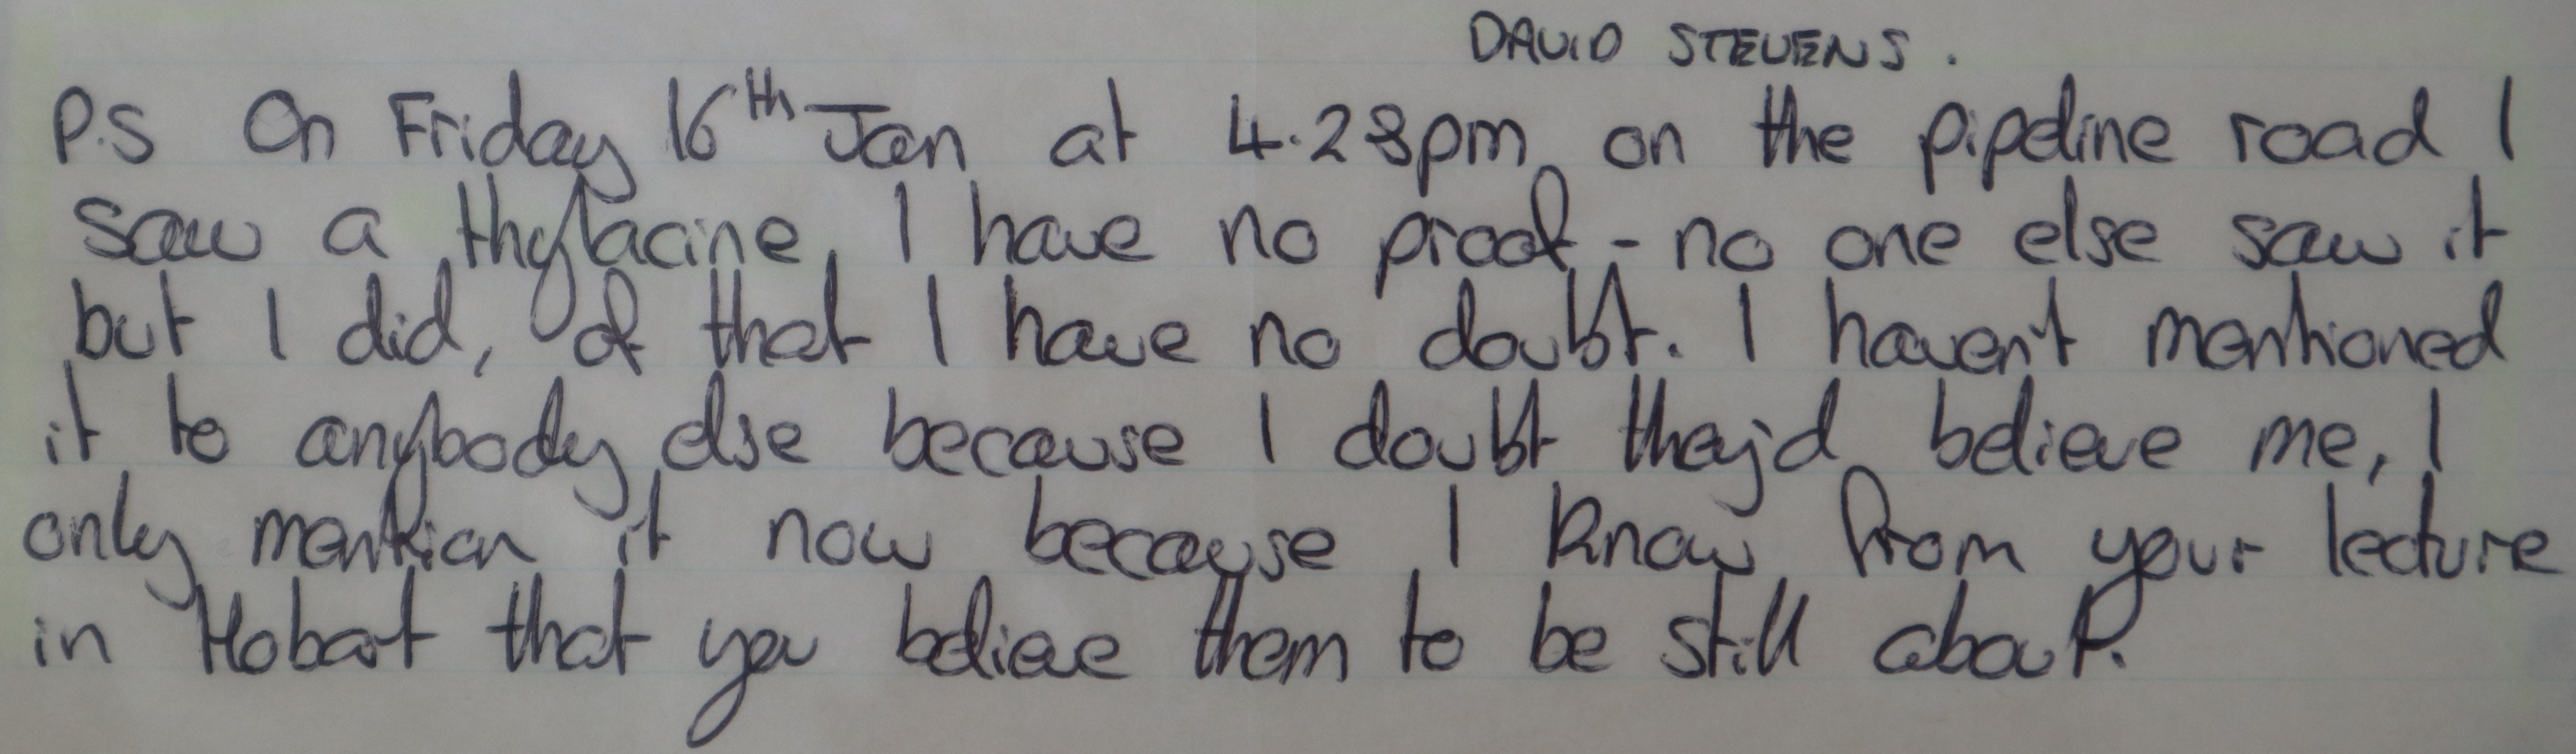 DAVID STEVENS.
P.S On Friday 16th Jan at 4.28pm on the pipeline road I
saw a thylacine. I have no proof - no one else saw it
but I did, of that I have no doubt. I haven't mentioned
it to anybody else because I doubt they'd believe me, I
only mention it now because I know from your lecture
in Hobart that you believe them to be still about.